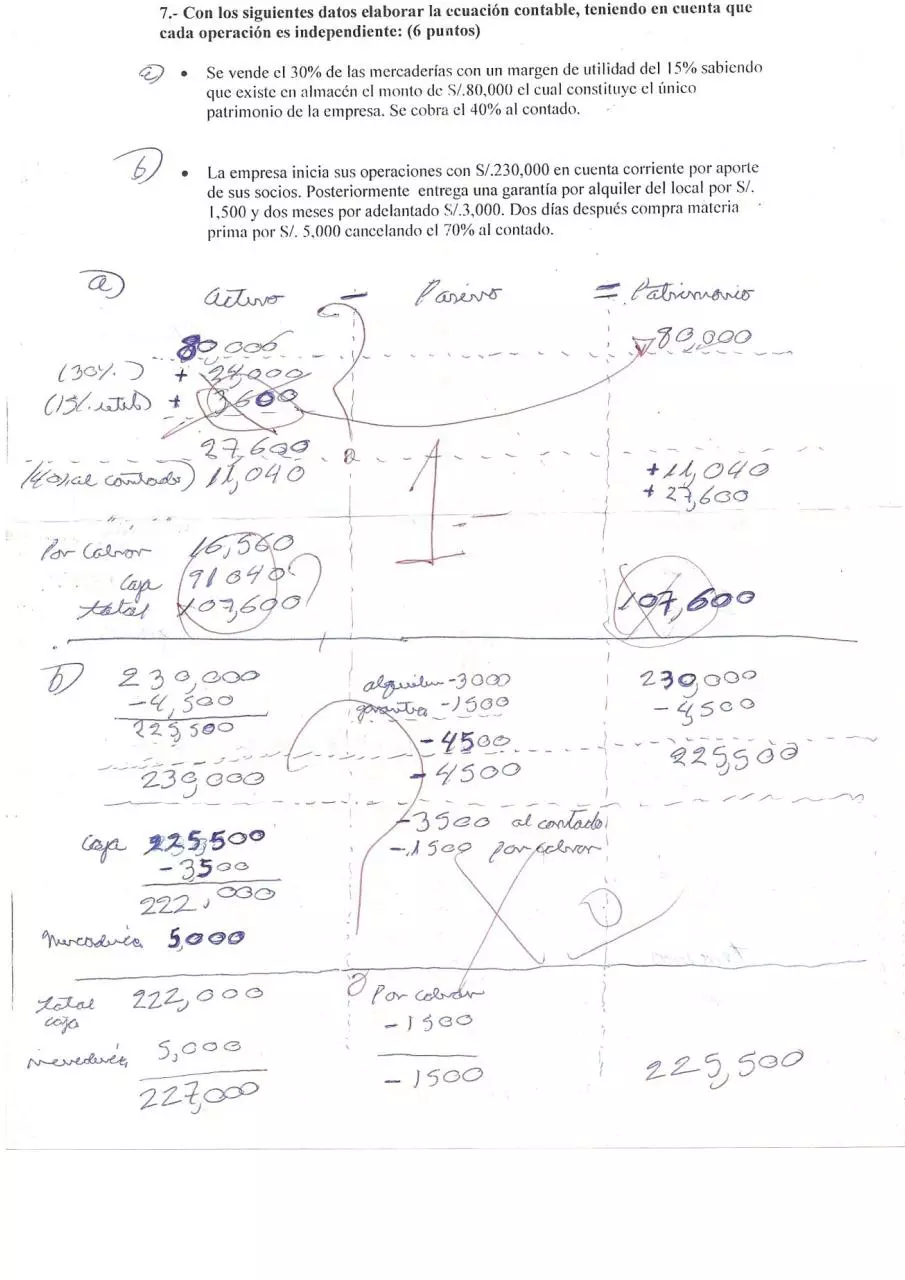 7.- Con los siguientes datos elaborar la ecuación contable, teniendo en cuenta que
cada operación es independiente: (6 puntos)
a) • Se vende el 30% de las mercaderías con un margen de utilidad del 15% sabiendo
que existe en almacén el monto de S/.80,000 el cual constituye el único
patrimonio de la empresa. Se cobra el 40% al contado.
b) • La empresa inicia sus operaciones con S/.230,000 en cuenta corriente por aporte
de sus socios. Posteriormente entrega una garantía por alquiler del local por S/.
1,500 y dos meses por adelantado S/.3,000. Dos días después compra materia
prima por S/. 5,000 cancelando el 70% al contado.
a) Activo - Pasivo = Patrimonio
80,000 80,000
(30%) + 24,000
(15% ) + 3600
27,600
(40% al contado) 11,040 +11,040
+ 27,600
1
Por Cobrar 16,560
Caja 91040
total 107,600 107,600
b) 230,000 alquiler -3000 230,000
-4,500 garantia -1500 -4500
225,500 -4500 225,500
230,000 -4500
-3500 al contado
Caja 225,500 -1500 por cobrar
-3500
222,000 0
Mercadería 5,000
total caja 222,000 Por cobrar
-1500
mercadería 5,000
227,000 -1500 225,500